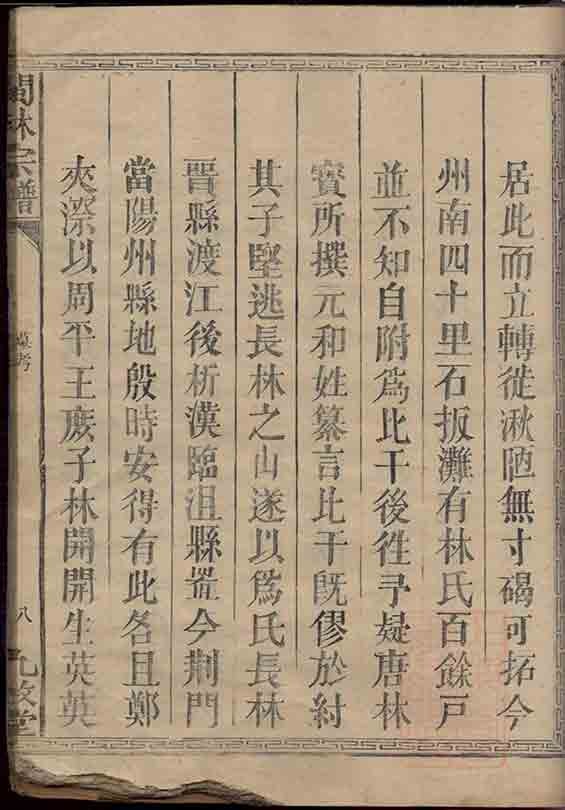 居此而立轉徙湫陋無寸碣可拓今
州南四十里石扳灘有林氏百餘戸
並不知自附爲比干後徃予疑唐林
寳所撰元和姓纂言比干旣僇於紂
其子堅逃長林之山遂以爲氏長林
晉縣渡江後析漢臨沮縣置今荆門
當陽州縣地殷時安得有此各且鄭
夾漈以周平王庻子林開開生英英
林宗譜
八
九牧堂